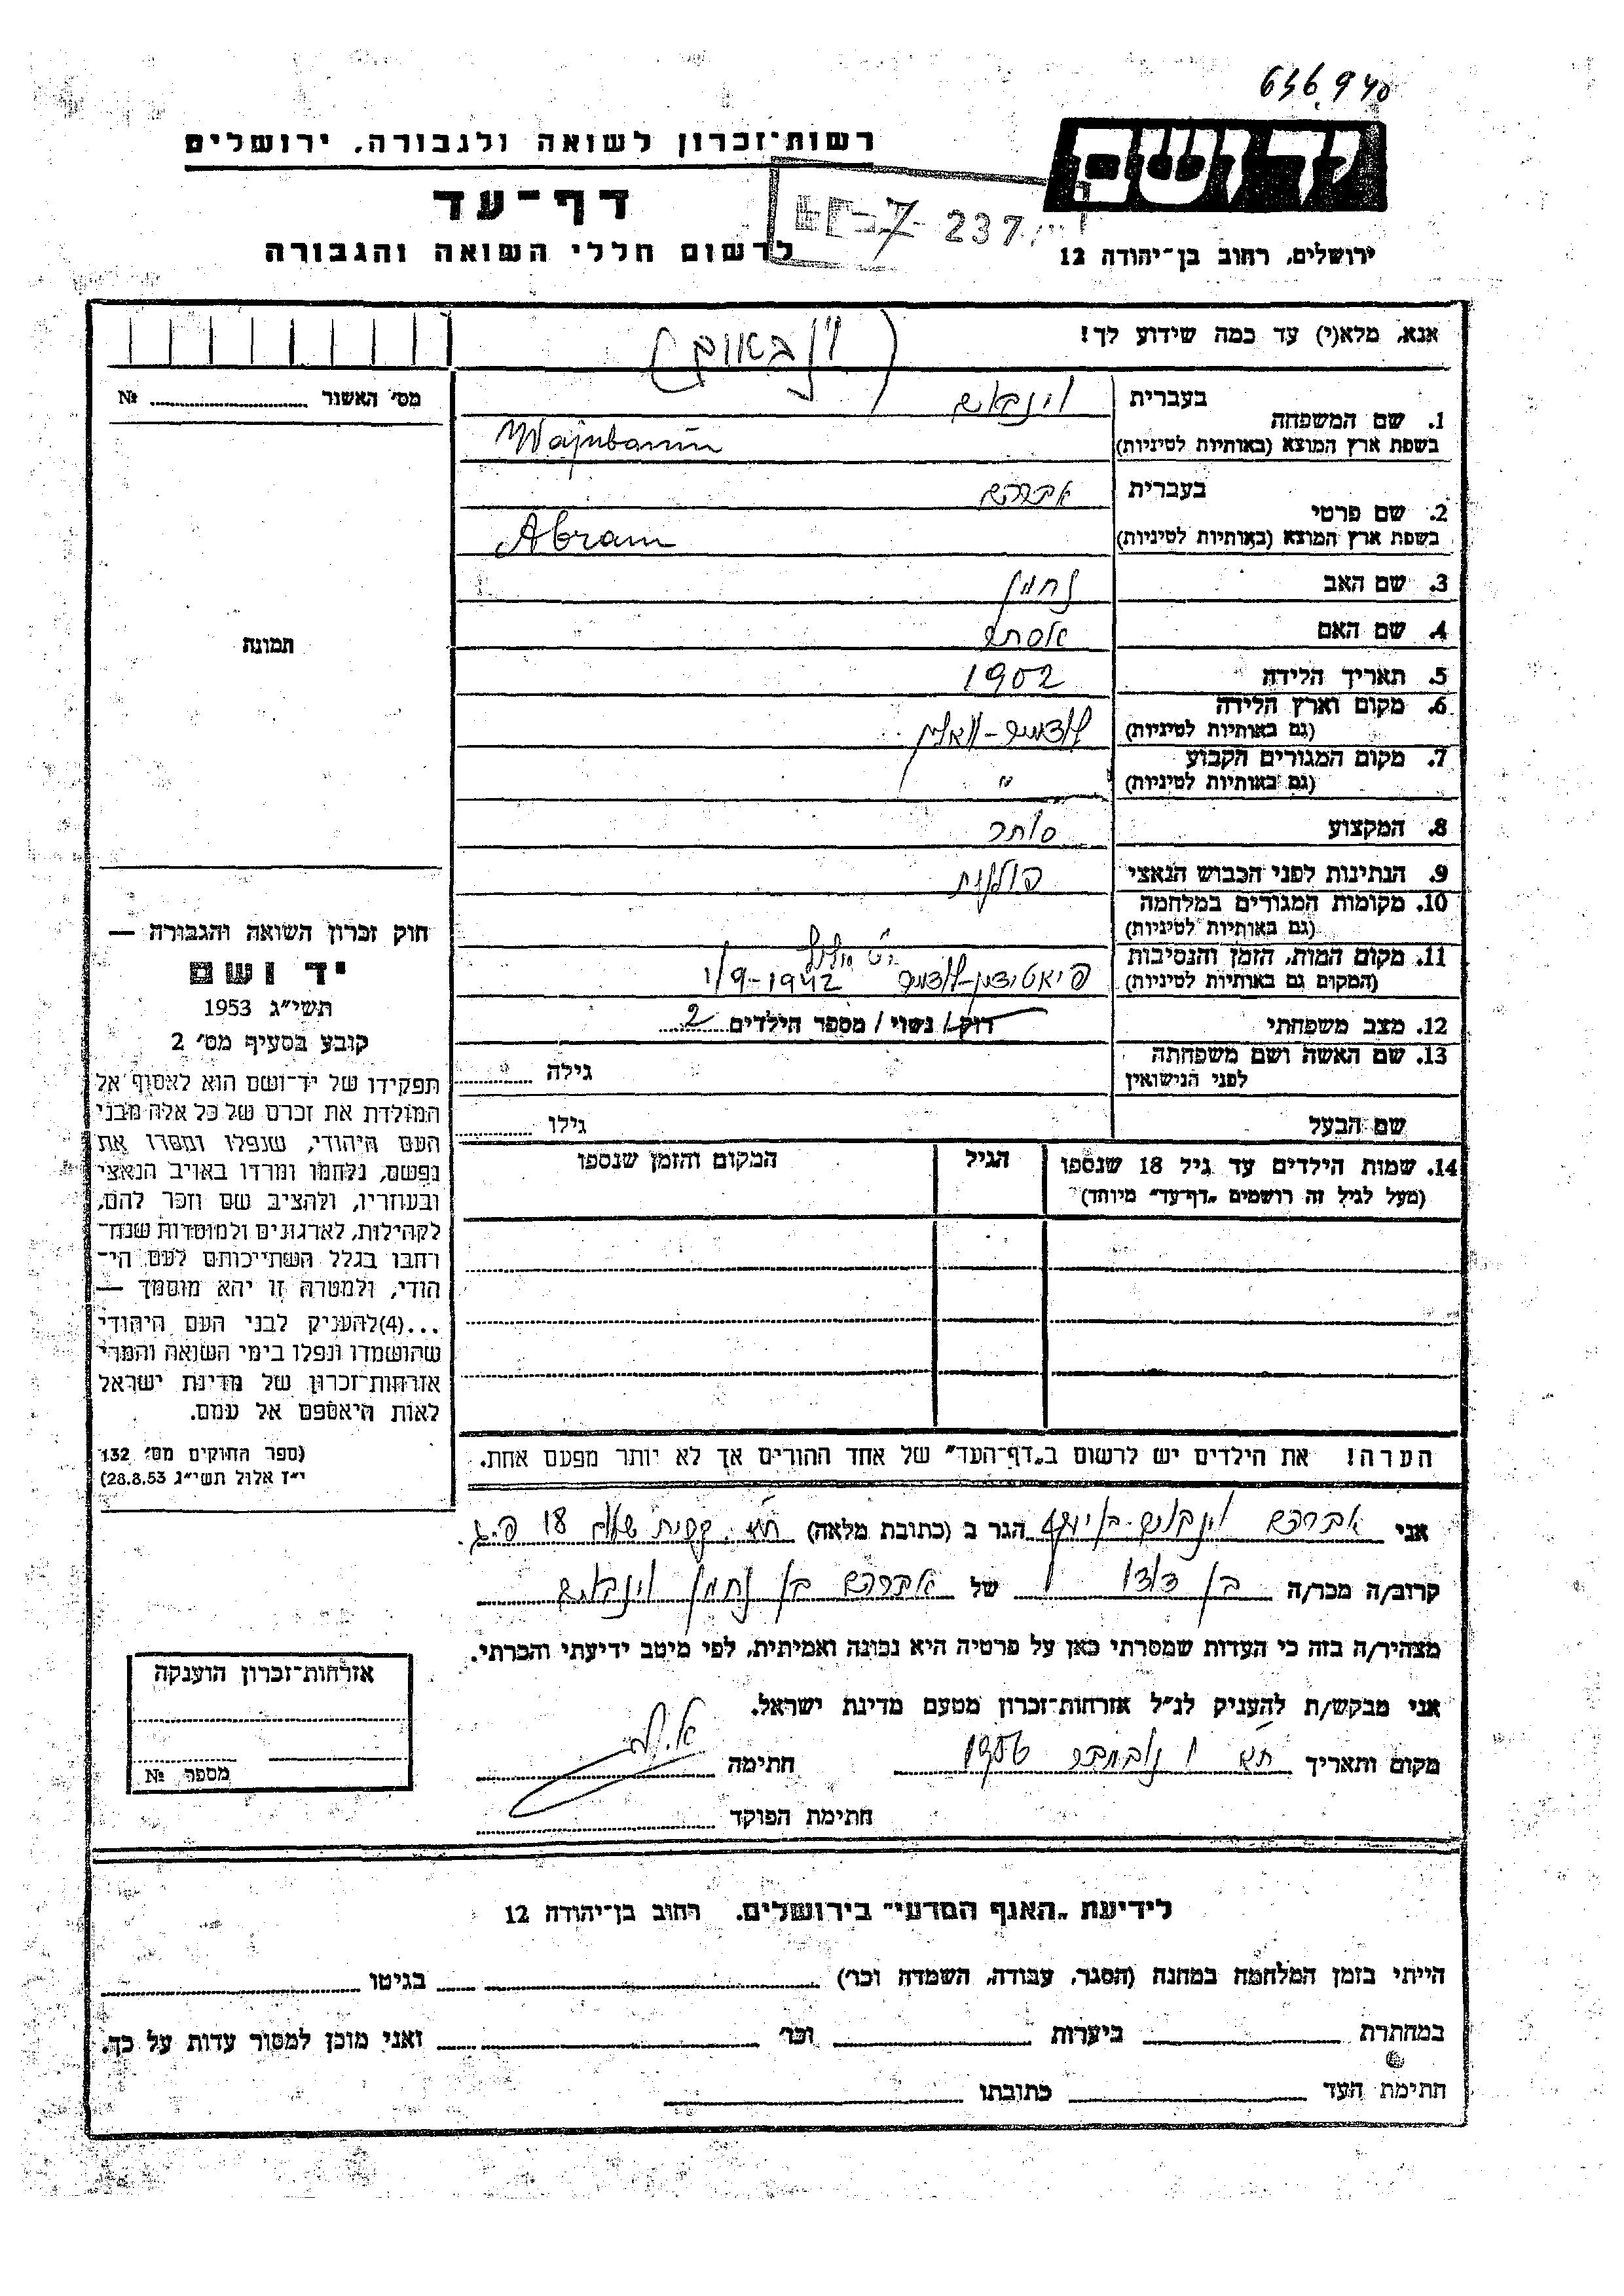 636940
יד ושם
רשות־זכרון לשואה ולגבורה, ירושלים
דף־עד
237
לרשום חללי השואה והגבורה
ירושלים, רחוב בן־יהודה 12
אנא, מלא(י) עד כמה שידוע לך!
(ויינבאום)
מס׳ האשור № ........
1. שם המשפחה
בעברית וינבאום
בשפת ארץ המוצא (באותיות לטיניות) Wajnbaum
2. שם פרטי
בעברית אברהם
בשפת ארץ המוצא (באותיות לטיניות) Abram
3. שם האב נחמן
4. שם האם אסתר
תמונה
5. תאריך הלידה 1902
6. מקום וארץ הלידה
(גם באותיות לטיניות) לודמיר-ווהלין
7. מקום המגורים הקבוע
(גם באותיות לטיניות) "
8. המקצוע סוחר
9. הנתינות לפני הכבוש הנאצי פולנית
10. מקומות המגורים במלחמה
(גם באותיות לטיניות)
11. מקום המות, הזמן והנסיבות
(המקום גם באותיות לטיניות) פיאטידין-לודמיר 1/9-1942
12. מצב משפחתי רווק / נשוי / מספר הילדים 2
13. שם האשה ושם משפחתה
לפני הנישואין גילה
שם הבעל גילו
14. שמות הילדים עד גיל 18 שנספו הגיל המקום והזמן שנספו
(מעל לגיל זה רושמים „דף־עד” מיוחד)
חוק זכרון השואה והגבורה —
יד ושם
תשי״ג 1953
קובע בסעיף מס׳ 2
תפקידו של יד־ושם הוא לאסוף אל
המולדת את זכרם של כל אלה מבני
העם היהודי, שנפלו ומסרו את
נפשם, נלחמו ומרדו באויב הנאצי
ובעוזריו, ולהציב שם וזכר להם,
לקהילות, לארגונים ולמוסדות שנח־
רחבו בגלל השתייכותם לעם הי־
הודי, ולמטרה זו יהא מוסמך —
...(4)להעניק לבני העם היהודי
שהושמדו ונפלו בימי השואה והמרי
אזרחות־זכרון של מדינת ישראל
לאות היאספם אל עמם.
(ספר החוקים מס׳ 132
י״ז אלול תשי״ג 28.8.53)
הערה! את הילדים יש לרשום ב„דף־העד” של אחד ההורים אך לא יותר מפעם אחת.
אני אברהם וינבוים בן יוסף הגר ב (כתובת מלאה) 18
קרוב/ה מכר/ה בן דודו של אברהם בן נחמן וינבאום
מצהיר/ה בזה כי העדות שמסרתי כאן על פרטיה היא נכונה ואמיתית, לפי מיטב ידיעתי והכרתי.
אני מבקש/ת להעניק לנ״ל אזרחות־זכרון מטעם מדינת ישראל.
מקום ותאריך 1 נובמבר 1956 חתימה
חתימת הפוקד
אזרחות־זכרון הוענקה
מספר №
לידיעת „האגף המדעי” בירושלים, רחוב בן־יהודה 12
הייתי בזמן המלחמה במחנה (הסגר, עבודה, השמדה וכר׳) בגיטו
במחתרת ביערות וכר׳ ואני מוכן למסור עדות על כך.
חתימת העד כתובתו